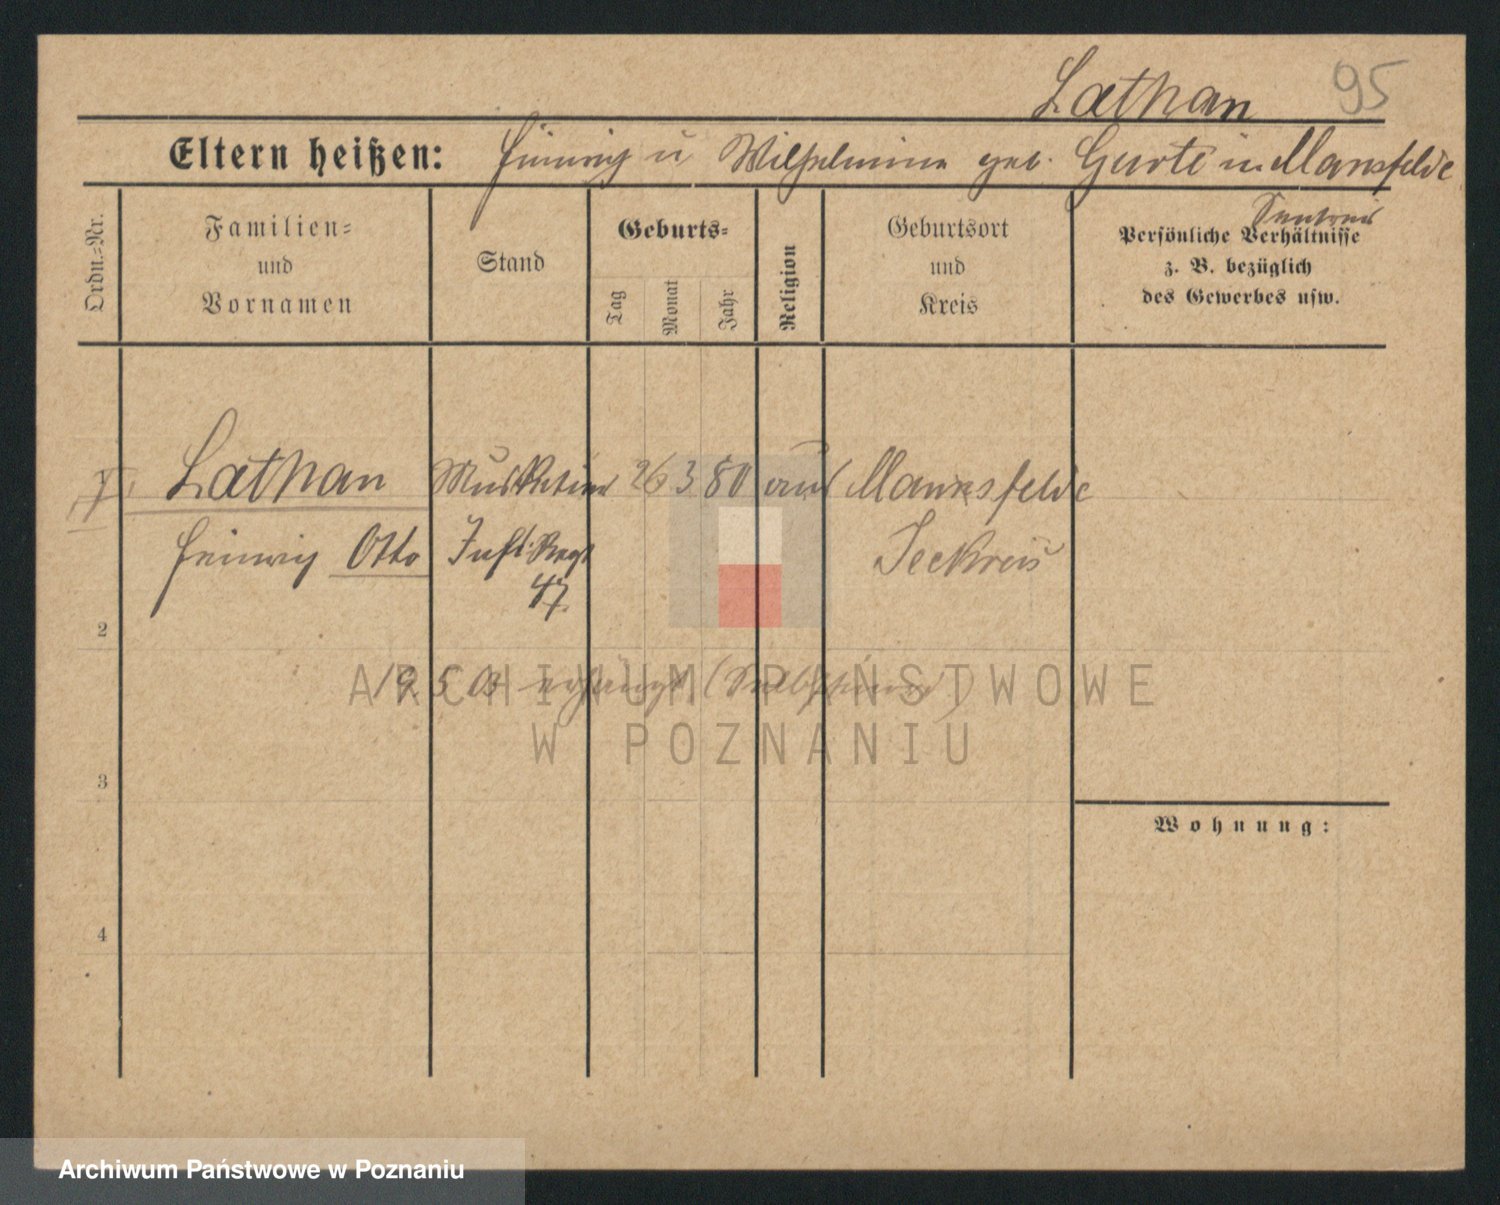 Lathan 95
Eltern heißen: Heinrich u Wilhelmine geb. Gurte in Mansfelde
Ordn.-Nr.
Familien-
und
Vornamen
Stand
Geburts-
Tag
Monat
Jahr
Religion
Geburtsort
und
Kreis
Persönliche Verhältnisse
z. B. bezüglich
des Gewerbes usw.
Lathan Musketier 26 3 80 Mansfelde
Heinrich Otto Inft. Regt
47.
2
19 5 03 erhängt
ARCHIWUM PAŃSTWOWE
W POZNANIU
3
Wohnung:
4
Archiwum Państwowe w Poznaniu